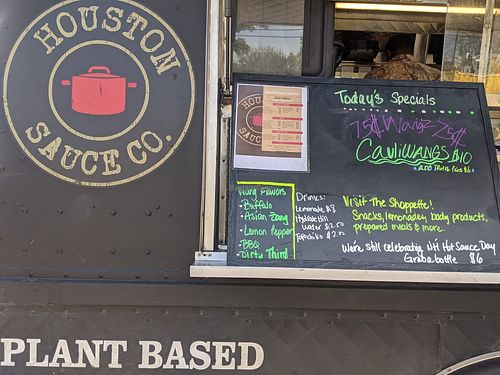 HOUSTON
SAUCE CO.
Today's Specials
75¢ Wangz 75¢
CauliWANGS $10
Wing Flavors
• Buffalo
• Asian Zang
• Lemon Pepper
• BBQ
• Dirty Third
Drinks:
Lemonade $8
Water $2.50
Topochico $3.50
Visit The Shoppette!
Snacks, lemonades, body products,
prepared meals & more.
We're still celebrating Ntl Hot Sauce Day
Grab a bottle $6
PLANT BASED